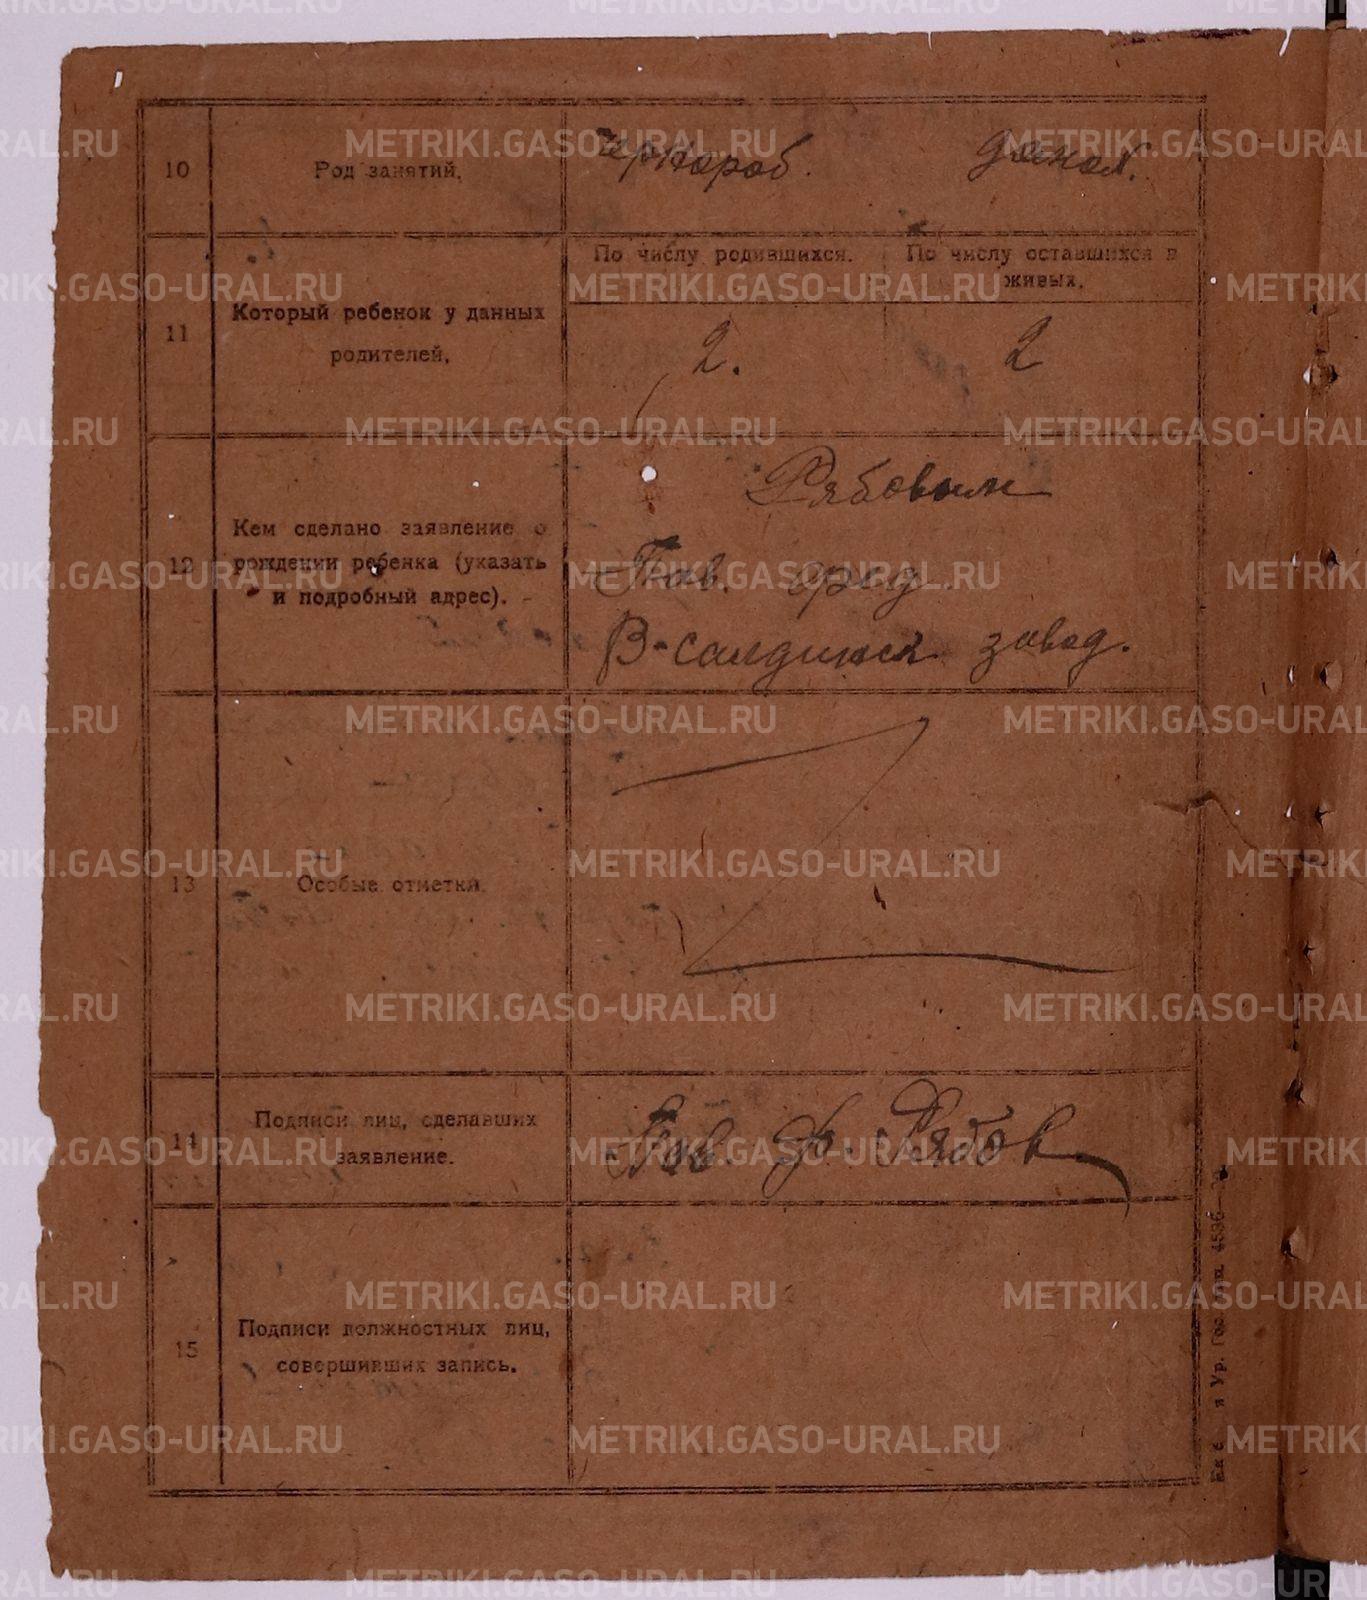 10 Род занятий. Чернораб. домохоз.
11 Который ребенок у данных родителей.
По числу родившихся. По числу оставшихся в живых.
2. 2
12 Кем сделано заявление о рождении ребенка (указать и подробный адрес).
Рябовым
Пав. Фед
В-салдинск завод.
13 Особые отметки.
14 Подписи лиц, сделавших заявление.
Пав. Ф. Рябов
15 Подписи должностных лиц, совершивших запись.
METRIKI.GASO-URAL.RU